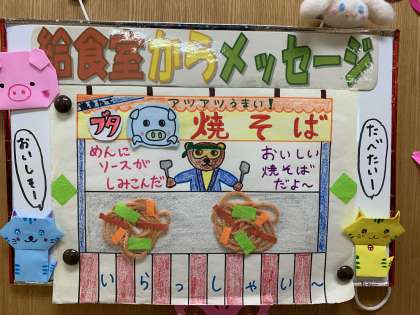 給食室からメッセージ
アツアツうまい!
ブタ
焼そば
めんに
ソースが
しみこんだ
おいしい
焼そば
だよ～
おいしそー!
たべたいー!
いらっしゃい～